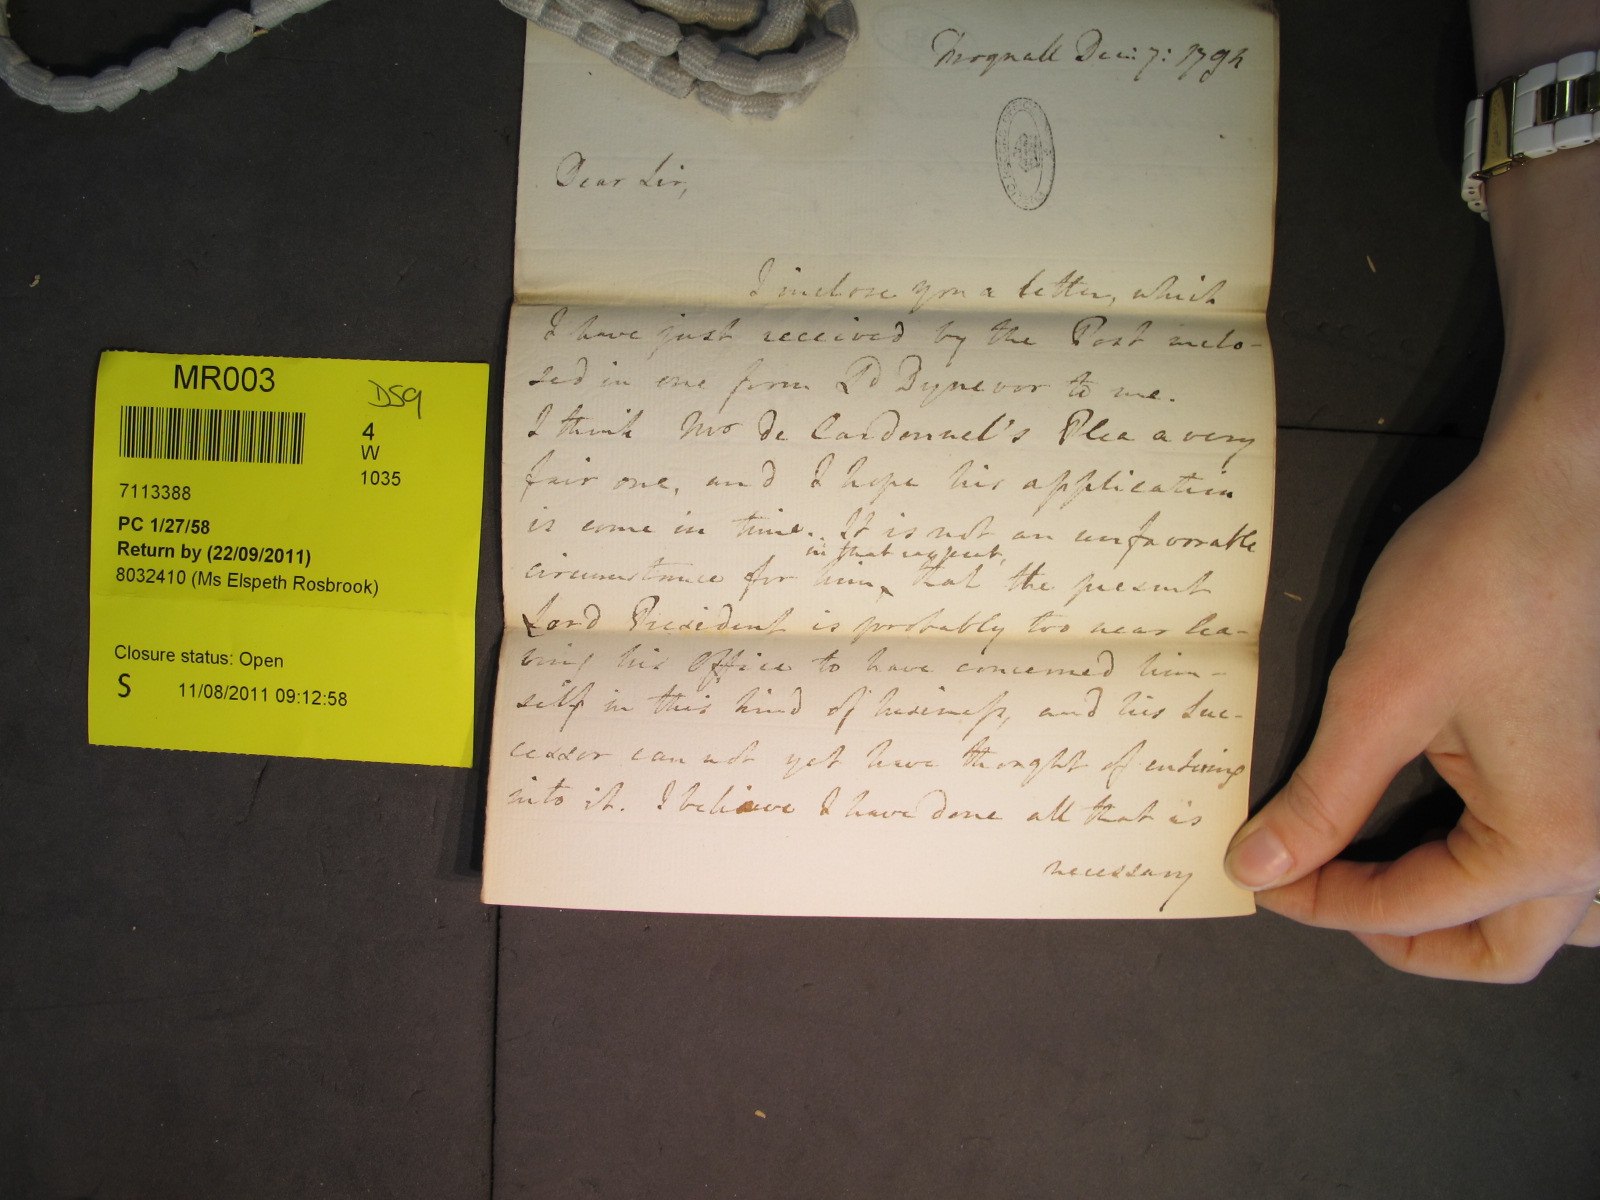 MR003
DS9
4
W
1035
7113388
PC 1/27/58
Return by (22/09/2011)
8032410 (Ms Elspeth Rosbrook)
Closure status: Open
S 11/08/2011 09:12:58
Frognall Dec: 7: 1794
Dear Sir,
I inclose you a letter, which
I have just received by the Post inclo-
sed in one from Ld Dynevor to me.
I think Mr de Cardonnel's Plea a very
fair one, and I hope his application
is come in time. It is not an unfavorable
in that respect,
circumstance for him, that the present
Lord President is probably too near lea-
ving his Office to have concerned him-
self in this kind of business, and his Suc-
cessor can not yet have thought of entering
into it. I believe I have done all that is
necessary